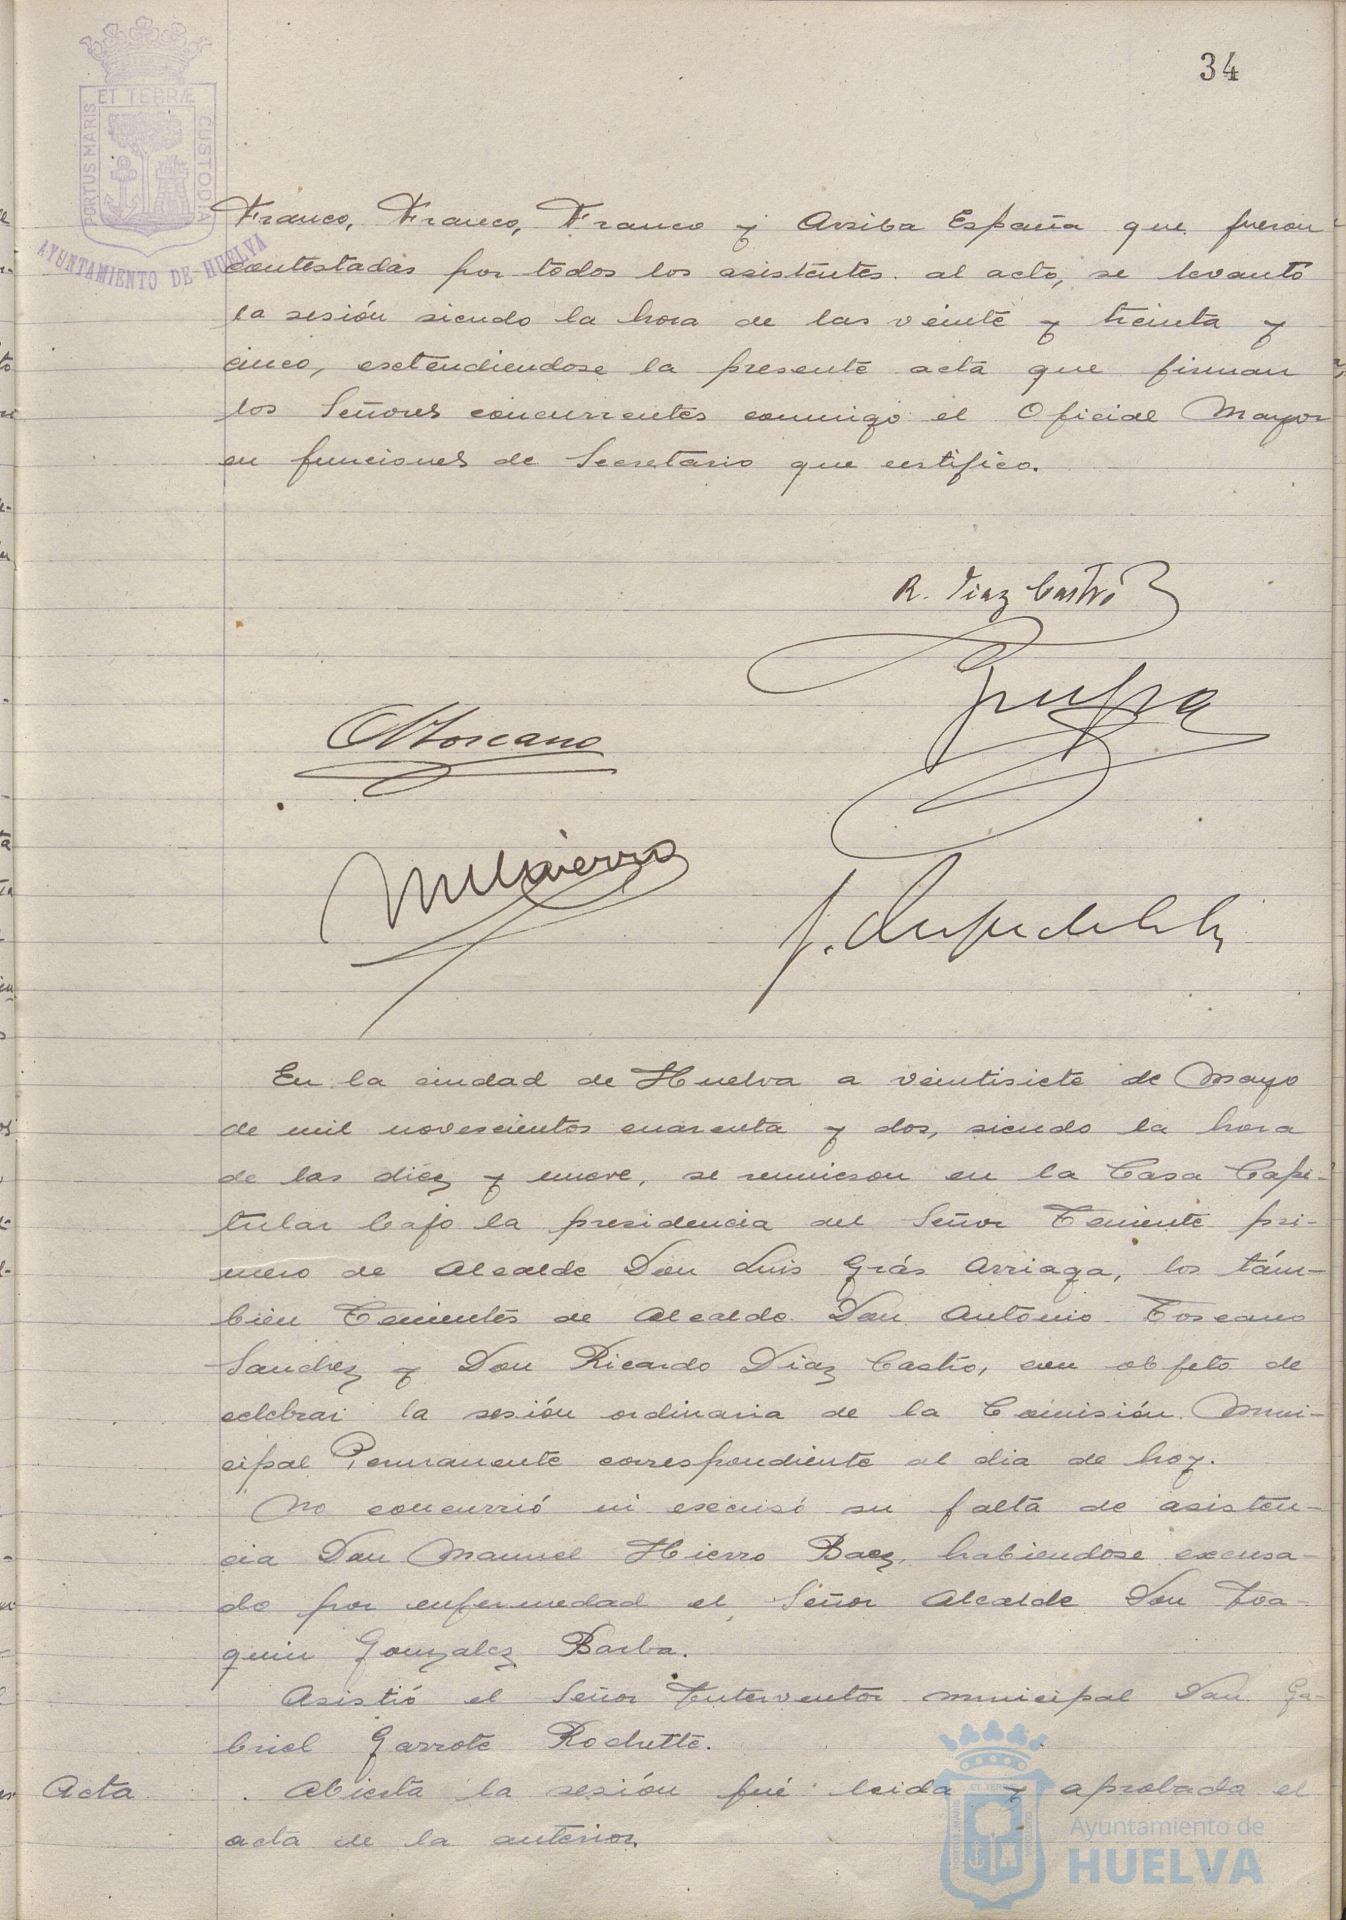 34
PORTUS MARIS ET TERRÆ CUSTODIA
AYUNTAMIENTO DE HUELVA
Franco, Franco, Franco y Arriba España que fueron
contestadas por todos los asistentes al acto, se levantó
la sesión siendo la hora de las veinte y treinta y
cinco, esctendiendose la presente acta que firman
los Señores concurrentes conmigo el Oficial Mayor
en funciones de Secretario que certifico.
R. Diaz Castro
AToscano
MHierro
En la ciudad de Huelva a veintisiete de Mayo
de mil novescientos cuarenta y dos, siendo la hora
de las diez y nueve, se reunieron en la Casa Capi-
tular bajo la presidencia del Señor Teniente pri-
mero de Alcalde Don Luis Grás Arriaga, los tám-
bien Tenientes de Alcalde Don Antonio Toscano
Sanchez y Don Ricardo Diaz Castro, con objeto de
celebrar la sesión ordinaria de la Comisión Muni-
cipal Permanente correspondiente al dia de hoy.
No concurrió ni escusó su falta de asisten-
cia Don Manuel Hierro Baez, habiendose excusa-
do por enfermedad el Señor Alcalde Don Joa-
quin Gonzalez Barba.
Asistió el Señor Interventor municipal Don Ga-
briel Garrote Rochette.
Acta Abierta la sesión fué leida y aprobada el
acta de la anterior.
Ayuntamiento de
HUELVA